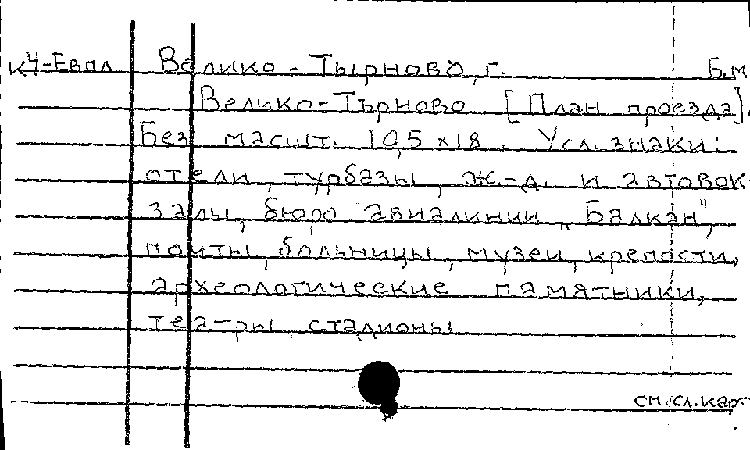 К4-Евпл Велико-Тырново, г. Б.м
Велико-Търново [План проезда].
Без масшт. 10,5 х 18. Усл. знаки:
отели, турбазы, ж.-д. и автовок-
залы, бюро авиалинии „Балкан",
почты, больницы, музеи, крепости,
археологические памятники,
театры, стадионы
см. сл. карт